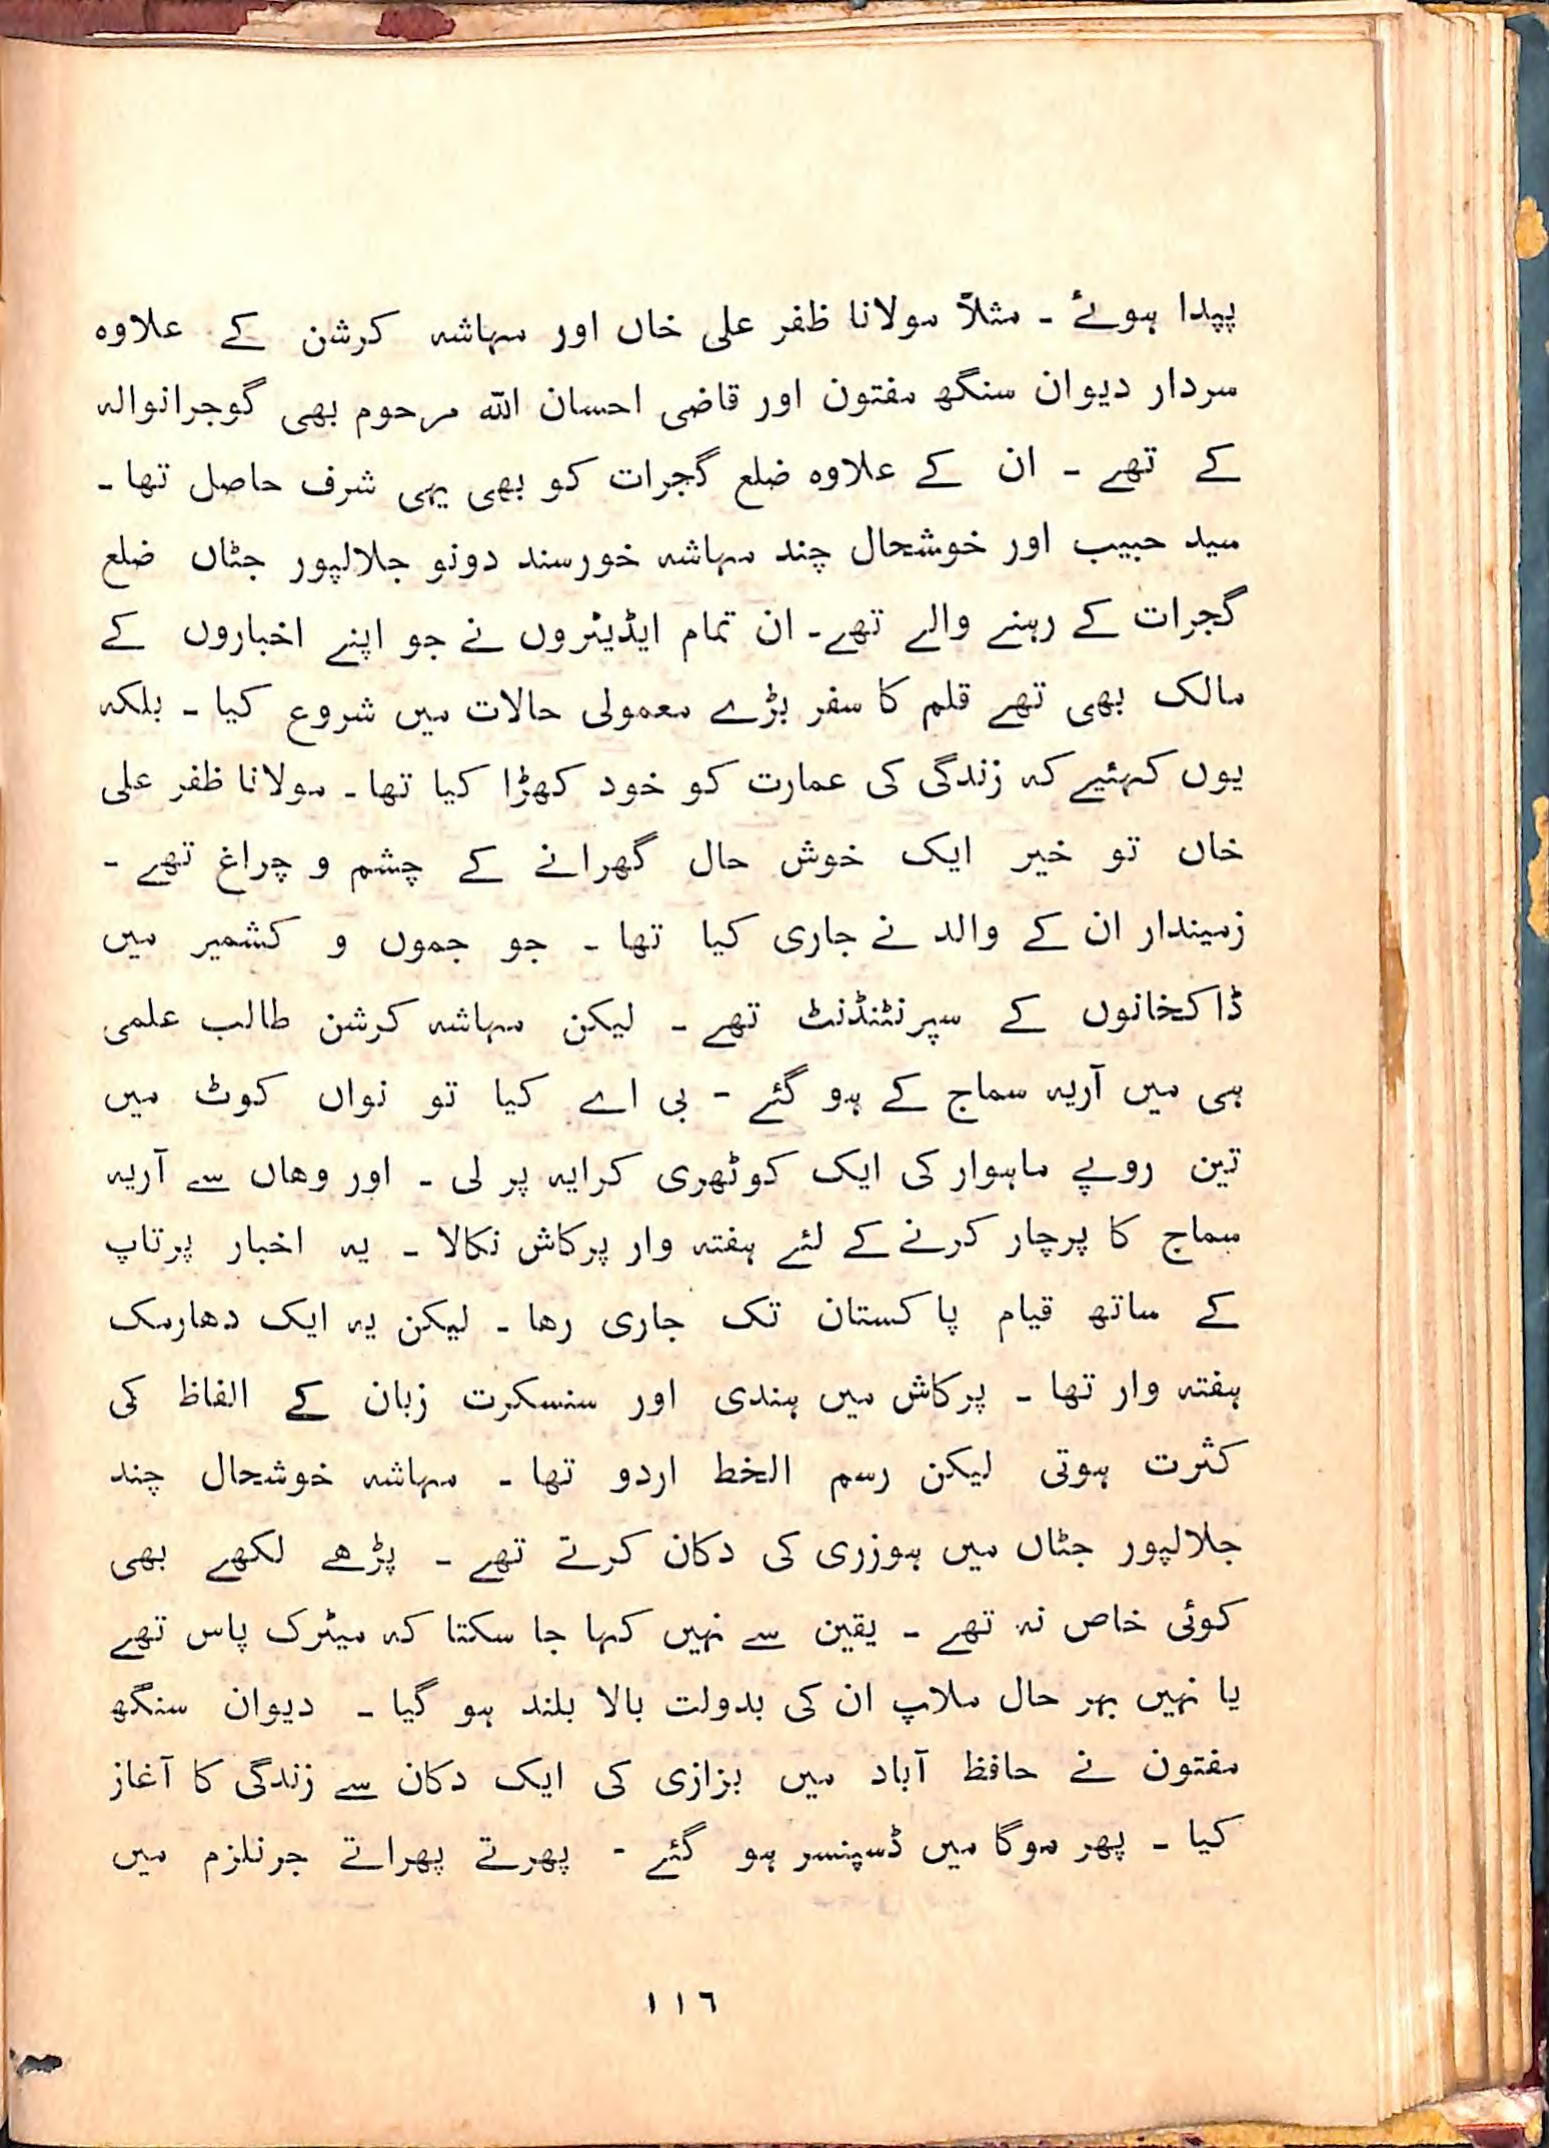 پیدا ہوئے ۔ مثلاً مولانا ظفر علی خاں اور مہاشہ کرشن کے علاوہ
سردار دیوان سنگھ مفتون اور قاضی احسان اللہ مرحوم بھی گوجرانوالہ
کے تھے ۔ ان کے علاوہ ضلع گجرات کو بھی یہی شرف حاصل تھا ۔
سید حبیب اور خوشحال چند مہاشہ خورسند دونو جلالپور جٹاں ضلع
گجرات کے رہنے والے تھے ۔ ان تمام ایڈیٹروں نے جو اپنے اخباروں کے
مالک بھی تھے قلم کا سفر بڑے معمولی حالات میں شروع کیا ۔ بلکہ
یوں کہئیے کہ زندگی کی عمارت کو خود کھڑا کیا تھا ۔ مولانا ظفر علی
خاں تو خیر ایک خوش حال گھرانے کے چشم و چراغ تھے ۔
زمیندار ان کے والد نے جاری کیا تھا ۔ جو جموں و کشمیر میں
ڈاکخانوں کے سپرنٹنڈنٹ تھے ۔ لیکن مہاشہ کرشن طالب علمی
ہی میں آریہ سماج کے ہو گئے - بی اے کیا تو نواں کوٹ میں
تین روپے ماہوار کی ایک کوٹھری کرایہ پر لی ۔ اور وھاں سے آریہ
سماج کا پرچار کرنے کے لئے ہفتہ وار پرکاش نکالا ۔ یہ اخبار پرتاپ
کے ساتھ قیام پاکستان تک جاری رھا ۔ لیکن یہ ایک دھارمک
ہفتہ وار تھا ۔ پرکاش میں ہندی اور سنسکرت زبان کے الفاظ کی
کثرت ہوتی لیکن رسم الخط اردو تھا ۔ مہاشہ خوشحال چند
جلالپور جٹاں میں ہوزری کی دکان کرتے تھے ۔ پڑھے لکھے بھی
کوئی خاص نہ تھے ۔ یقین سے نہیں کہا جا سکتا کہ میٹرک پاس تھے
یا نہیں بہر حال ملاپ ان کی بدولت بالا بلند ہو گیا ۔ دیوان سنگھ
مفتون نے حافظ آباد میں بزازی کی ایک دکان سے زندگی کا آغاز
کیا ۔ پھر موگا میں ڈسپنسر ہو گئے - پھرتے پھراتے جرنلزم میں
١١٦